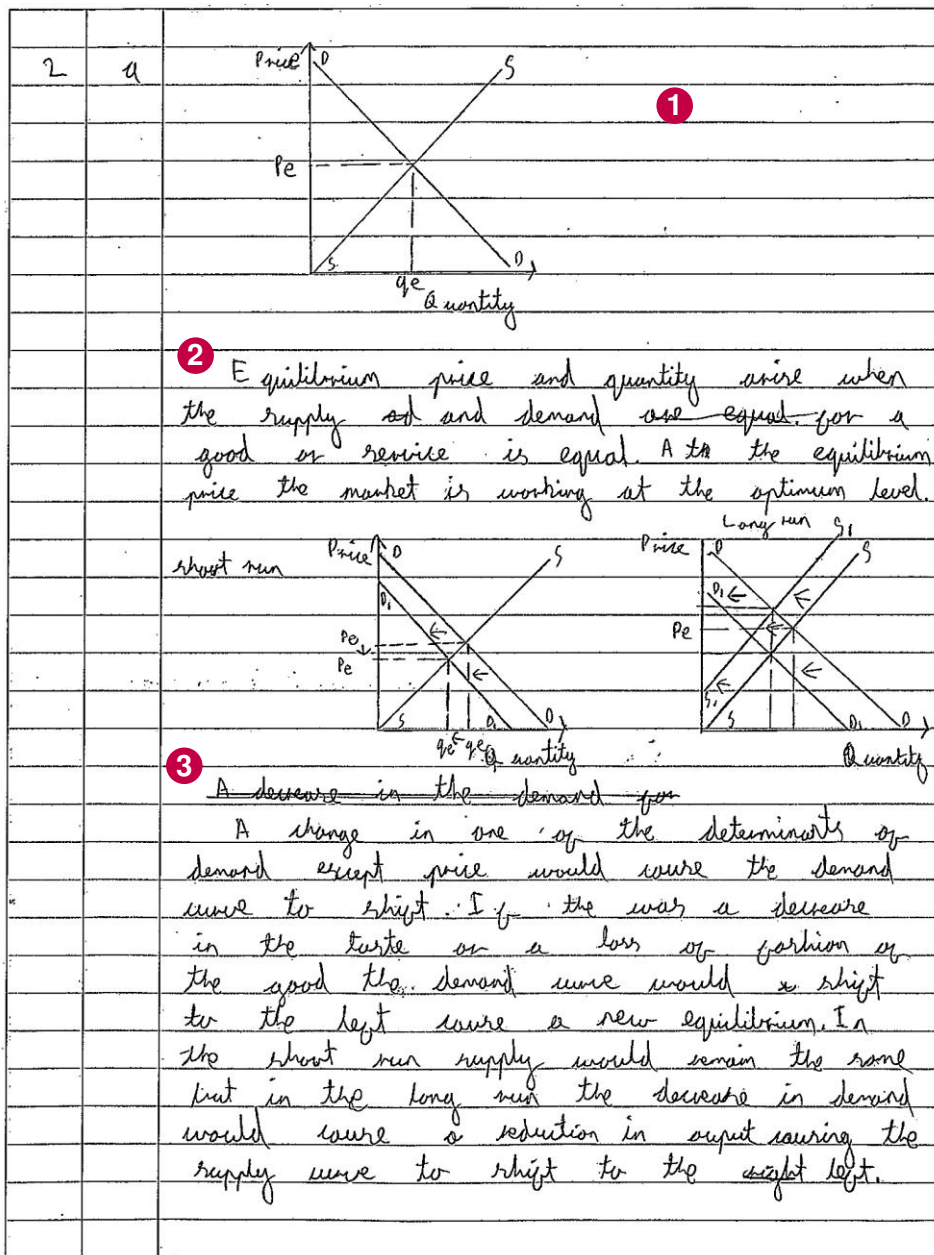 2 a
Price D S
1
Pe
S D
qe
Quantity
2
Equilibrium price and quantity arise when
the supply ad and demand are equal. for a
good or service is equal. A th the equilibrium
price the market is working at the optimum level.
short run
Price D S
D1
Pe
Pe
S D1 D
qe ← qe
Quantity
Long run
Price D S1 S
D1
Pe
S1 S D1 D
Quantity
3
A decrease in the demand for
A change in one of the determinants of
demand except price would cause the demand
curve to shift. If the was a decrease
in the taste or a loss of fashion of
the good the demand curve would shift
to the left cause a new equilibrium. In
the short run supply would remain the same
but in the long run the decrease in demand
would cause a reduction in ouput causing the
supply curve to shift to the right left.